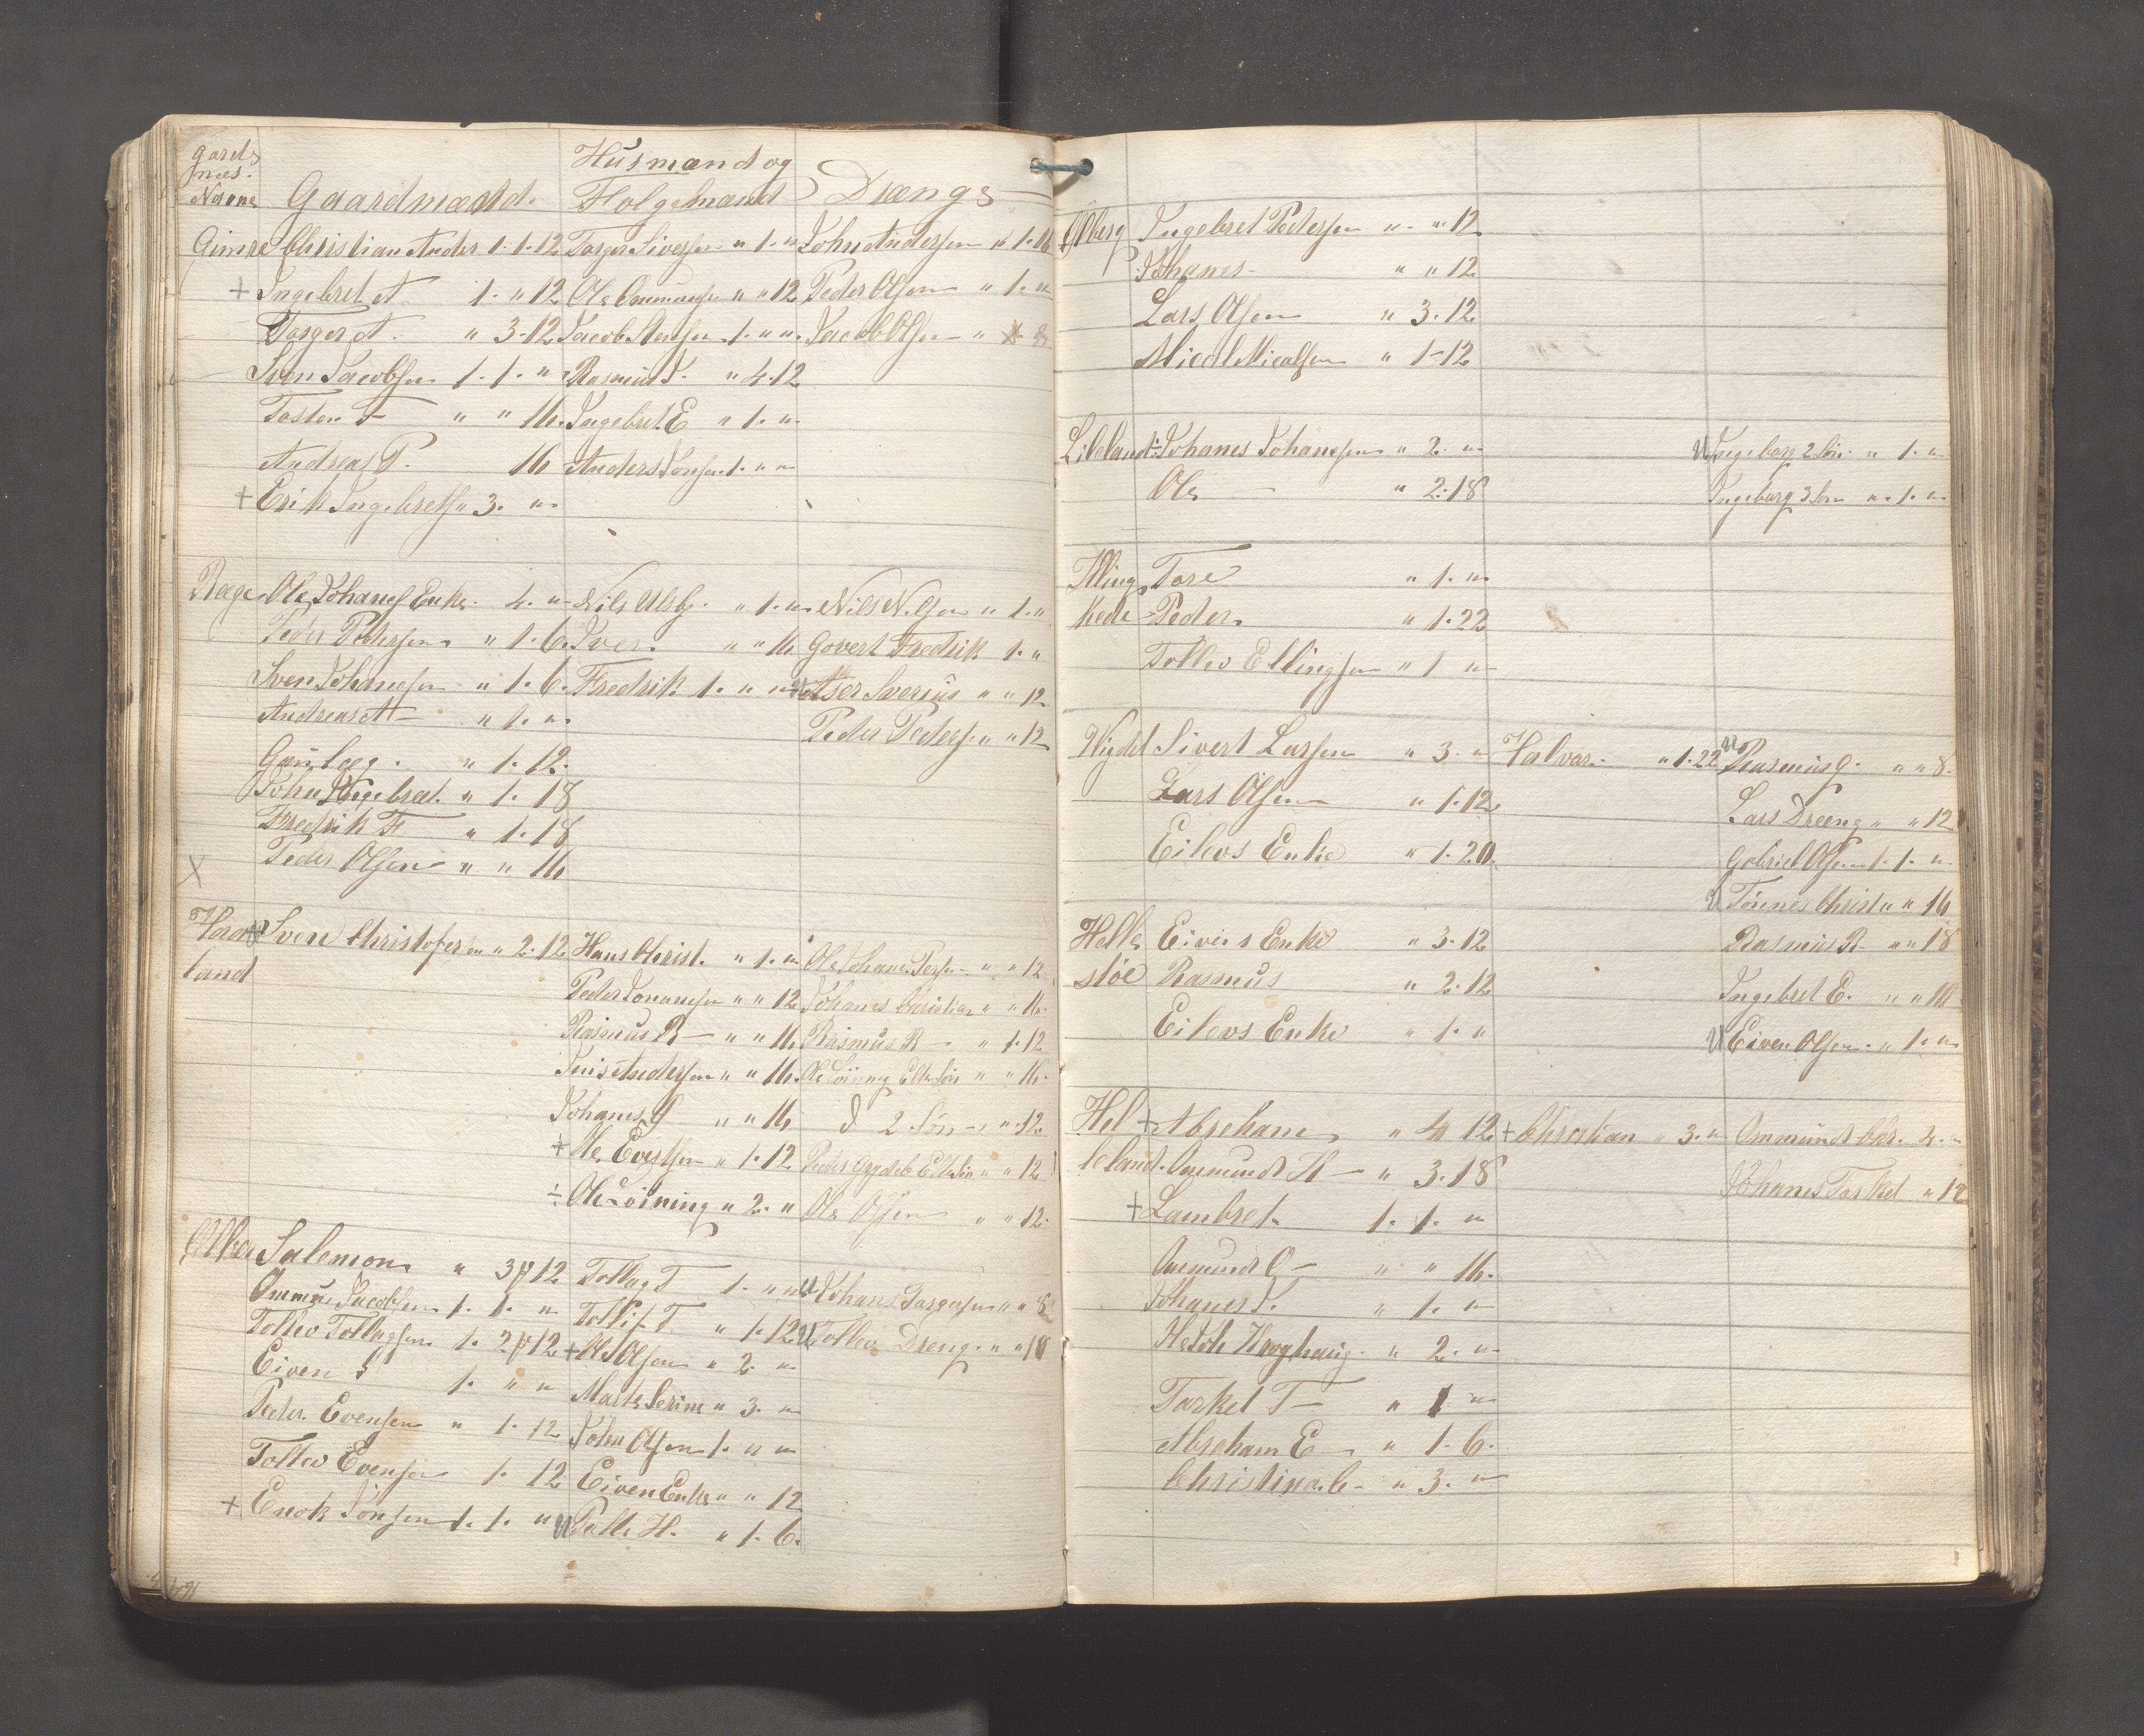 gards
Navne Gaardmænd. Husmænd og Drengs
Gimre Christian Ander 1. 1. 12 Torger Siversen " 1. " John Andersen " 1. 16
+ Ingebret A 1. " 12 Ole Ommunsen " " 12 Peder Olsen " 1. "
Torger A. " 3. 12 Jacob Stensen 1. " " Jacob Olsen "
Sven Jacobsen 1. 1. " Rasmus T. " 4. 12
Tosten T " " 16. Ingebret E " 1. "
Andreas P. 16 Anders Jonsen 1. " "
+ Erik Ingebretsen 3. "
Rege Ole Johanes Enke. 4. " Nils Ulsb. " 1. " Nils Nilsen " 1. "
Peder Pedersen " 1. 6. Iver. " " 16 Govert Fredrik 1. "
Sven Johansen " 1. 6. Fredrik 1. " " Aser Sverius " " 12
Andreas A " 1. " Peder Pedersen " 12
Gunleg. " 1. 12.
John Ingebret. " 1. 18
Fredrik F " 1. 18
X Peder Olsen " " 16
Hara + Sven Christofersen " 2. 12 Hans Christ. " 1. " Ole Johanes " " 12
land Peder Jonassen " " 12 Johanes Christian " " 16.
Rasmus R " " 16 Rasmus R " 1. 12
Jens Andersen " " 16. Ole Löining Elt. Sön " " 16.
Johanes G " " 16 d 2 Sön " 12.
+ Ole Evertsen " 1. 12 Peder Elt. Sön " " 12
÷ Ole Löining " 2. " Ole Olsen " " 12.
Salemon " 3 12 Tollag T 1. " " Johans Torgersen " " 8
Ommun Jacobsen 1. 1. " Tollif T " 1. 12 Tollev Dreng. " " 18
Tollev Tollagsen 1. 2 12 + Ole Olsen " 2. "
Eiven S 1. " " Marte Serine " 3. "
Peder. Evensen " 1. 12 John Olsen 1. " "
Tollev Evensen 1. 12 Eiven Enke " " 12
+ Enok Jonsen 1. 1. " Palle H. " 1. 6.
Ølberg Ingebret Pedersen " " 12
Johanes " " 12
Lars Olsen " 3. 12
Mical Micalsen " 1 12
Lileland ÷ Johanes Johanesen " 2. " Ingeborg 2 Sön. " 1. "
Ole " 2. 18 Ingeborg 3 Sön " 1. "
Kling Tore " 1. "
Kede Peder " 1. 22
Tollev Ellingsen " 1 "
Vigdel Sivert Larsen " 3. " Halvar. " 1. 22 Rasmus G. " " 8.
Lars Olsen " 1. 12. Lars Dreeng " " 12
Eilevs Enke " 1. 20 Gabriel Olsen 1. 1. "
Tönnes Christ " " 16
Helle Eivens Enke " 3. 12 Rasmus R. " " 18
stöe Rasmus " 2. 12 Ingebret E. " " 16
Eilevs Enke " 1. " Eiven Olsen. " 1. "
Hel + Abraham " 4 12. + Christian " 3. " Ommund Chr. 2. "
leland. Ommund H " 3. 18 Johanes Torkel " 12
+ Lambret. 1. 1. "
Ommund O " " 16.
Johanes T. " 1. "
" 2. "
Torkel T " 1 "
Abraham E " 1. 6.
Christina. C " 3. "